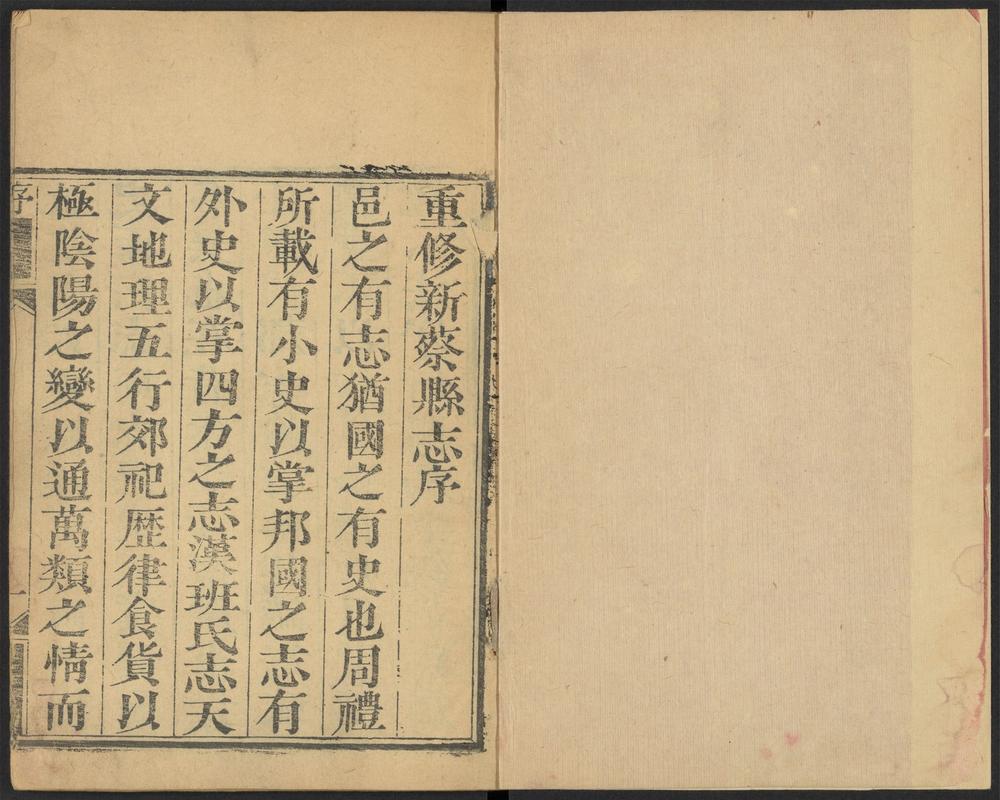 重修新蔡縣志序
邑之有志猶國之有史也周禮
所載有小史以掌邦國之志有
外史以掌四方之志漢班氏志天
文地理五行郊祀歴律食貨以
極陰陽之變以通萬類之情而
序
一